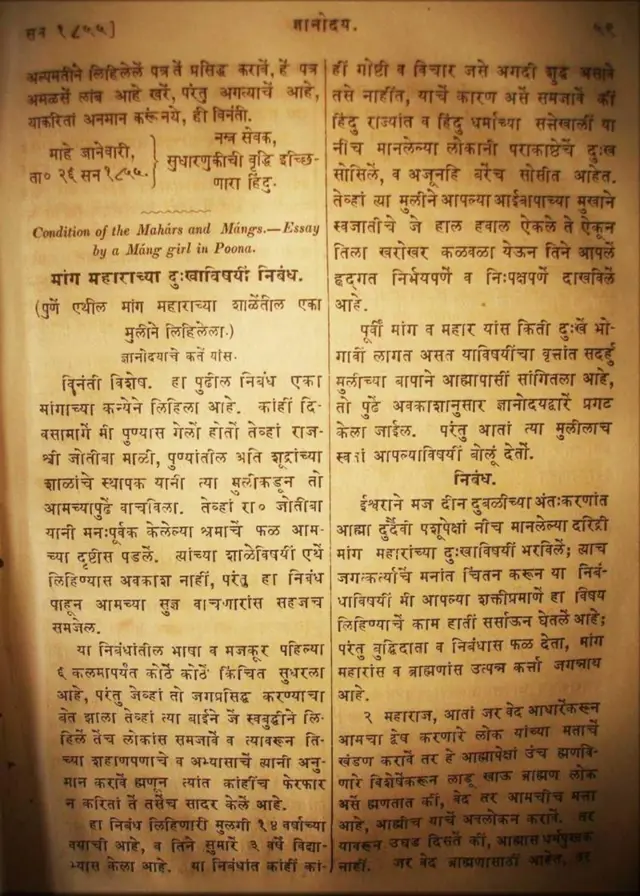 सन १८५५]
ज्ञानोदय.
५९
अन्यमतीने लिहिलेलें पत्र तें प्रसिद्ध करावें, हें पत्र
अमळसें लांब आहे खरें, परंतु अगत्याचें आहे,
याकरितां अनमान करूं नये, ही विनंती.
माहे जानेवारी,
ता० २६ सन १८५५.
नम्र सेवक,
सुधारणुकीची वृद्धि इच्छि-
णारा हिंदु.
Condition of the Mahárs and Mángs.—Essay
by a Máng girl in Poona.
मांग महाराच्या दुःखाविषयीं निबंध.
(पुणें एथील मांग महाराच्या शाळेंतील एका
मुलीने लिहिलेला.)
ज्ञानोदयाचे कर्ते यांस.
विनंती विशेष. हा पुढील निबंध एका
मांगाच्या कन्येने लिहिला आहे. कांहीं दि-
वसामागें मी पुण्यास गेलों होतों तेव्हां राज-
श्री जोतीबा माळी, पुण्यांतील अति शूद्रांच्या
शाळांचे स्थापक यानी त्या मुलीकडून तो
आमच्यापुढें वाचविला. तेव्हां रा० जोतीबा
यानी मनःपूर्वक केलेल्या श्रमाचें फळ आम-
च्या दृष्टीस पडलें. त्यांच्या शाळेविषयीं एथें
लिहिण्यास अवकाश नाहीं, परंतु हा निबंध
पाहून आमच्या सुज्ञ वाचणारांस सहजच
समजेल.
या निबंधांतील भाषा व मजकूर पहिल्या
६ कलमापर्यंत कोठें कोठें किंचित सुधरला
आहे, परंतु जेव्हां तो जगप्रसिद्ध करण्याचा
बेत झाला तेव्हां त्या बाईने जें स्वबुद्धीने लि-
हिलें तेंच लोकांस समजावें व त्यावरून ति-
च्या शहाणपणाचे व अभ्यासाचें त्यानी अनु-
मान करावें ह्मणून त्यांत कांहींच फेरफार
न करितां तें तसेंच सादर केलें आहे.
हा निबंध लिहिणारी मुलगी १४ वर्षाच्या
वयाची आहे, व तिने सुमारें ३ वर्षें विद्या-
भ्यास केला आहे. या निबंधांत कांहीं कां-
हीं गोष्टी व विचार जसे अगदी शुद्ध असावे
तसे नाहींत, याचें कारण असें समजावें कीं
हिंदु राज्यांत व हिंदु धर्माच्या सत्तेखालीं या
नीच मानलेल्या लोकानी पराकाष्ठेचें दुःख
सोसिलें, व अजूनहि बरेंच सोसीत आहेत.
तेव्हां त्या मुलीने आपल्या आईबापाच्या मुखाने
स्वजातीचे जे हाल हवाल ऐकले ते ऐकून
तिला खरोखर कळवळा येऊन तिने आपलें
हृद्गत निर्भयपणें व निःपक्षपणें दाखविलें
आहे.
पूर्वीं मांग व महार यांस किती दुःखें भो-
गावीं लागत असत याविषयींचा वृत्तांत सदर्हु
मुलीच्या बापाने आह्मापासीं सांगितला आहे,
तो पुढें अवकाशानुसार ज्ञानोदयद्वारें प्रगट
केला जाईल. परंतु आतां त्या मुलीलाच
स्वतां आपल्याविषयीं बोलूं देतों.
निबंध.
ईश्वराने मज दीन दुबळीच्या अंतःकरणांत
आह्मा दुर्दैवी पशूपेक्षां नीच मानलेल्या दरिद्री
मांग महारांच्या दुःखाविषयीं भरविलें; त्याच
जगत्कर्त्याचें मनांत चिंतन करून या निबं-
धाविषयीं मी आपल्या शक्तीप्रमाणें हा विषय
लिहिण्याचें काम हातीं सर्साऊन घेतलें आहे;
परंतु बुद्धिदाता व निबंधास फळ देता, मांग
महारांस व ब्राह्मणांस उत्पन्न कर्त्ता जगन्नाथ
आहे.
२ महाराज, आतां जर वेद आधारेंकरून
आमचा द्वेष करणारे लोक यांच्या मताचें
खंडण करावें तर हे आह्मापेक्षां उंच ह्मणवि-
णारे विशेषेंकरून लाडू खाऊ ब्राह्मण लोक
असें ह्मणतात कीं, वेद तर आमचीच मत्ता
आहे, आह्मीच याचें अवलोकन करावें. तर
यावरून उघड दिसतें कीं, आह्मास धर्मपुस्तक
नाहीं. जर वेद ब्राह्मणासाठीं आहेत, तर